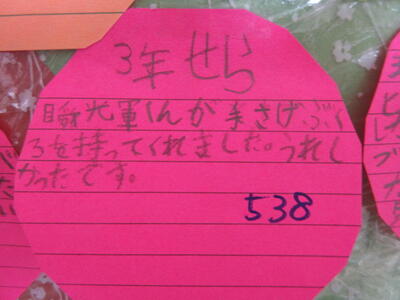 3年 せら
瞬輝くんが手さげぶく
ろを持ってくれました。うれし
かったです。
538